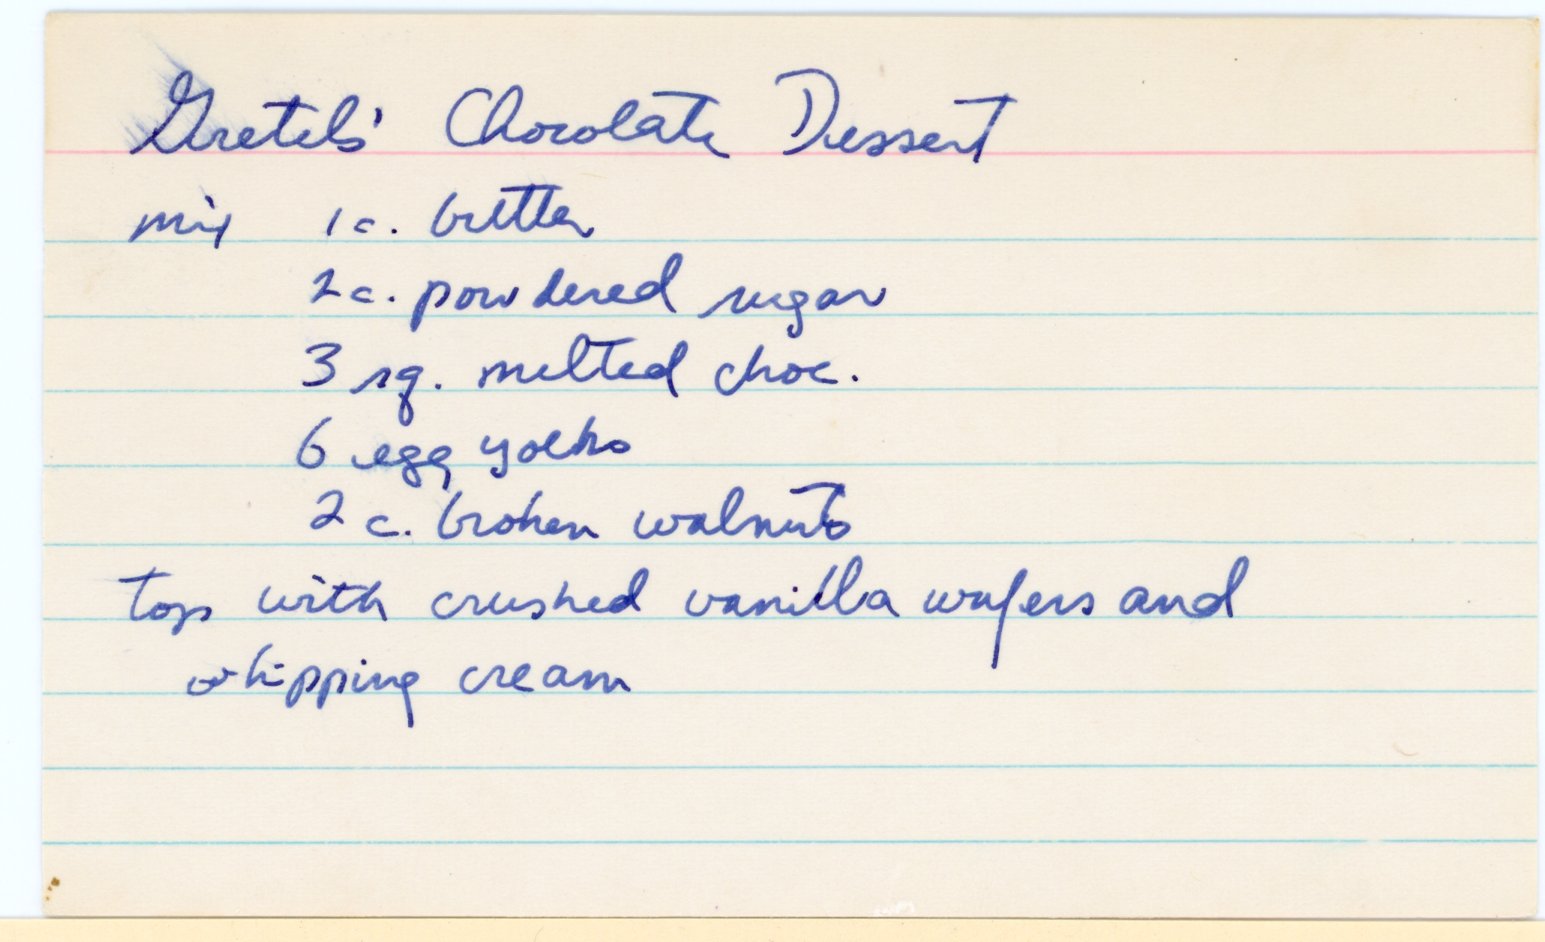 Gretels' Chocolate Dessert
mix 1 c. butter
2 c. powdered sugar
3 sq. melted choc.
6 egg yolks
2 c. broken walnuts
top with crushed vanilla wafers and
whipping cream